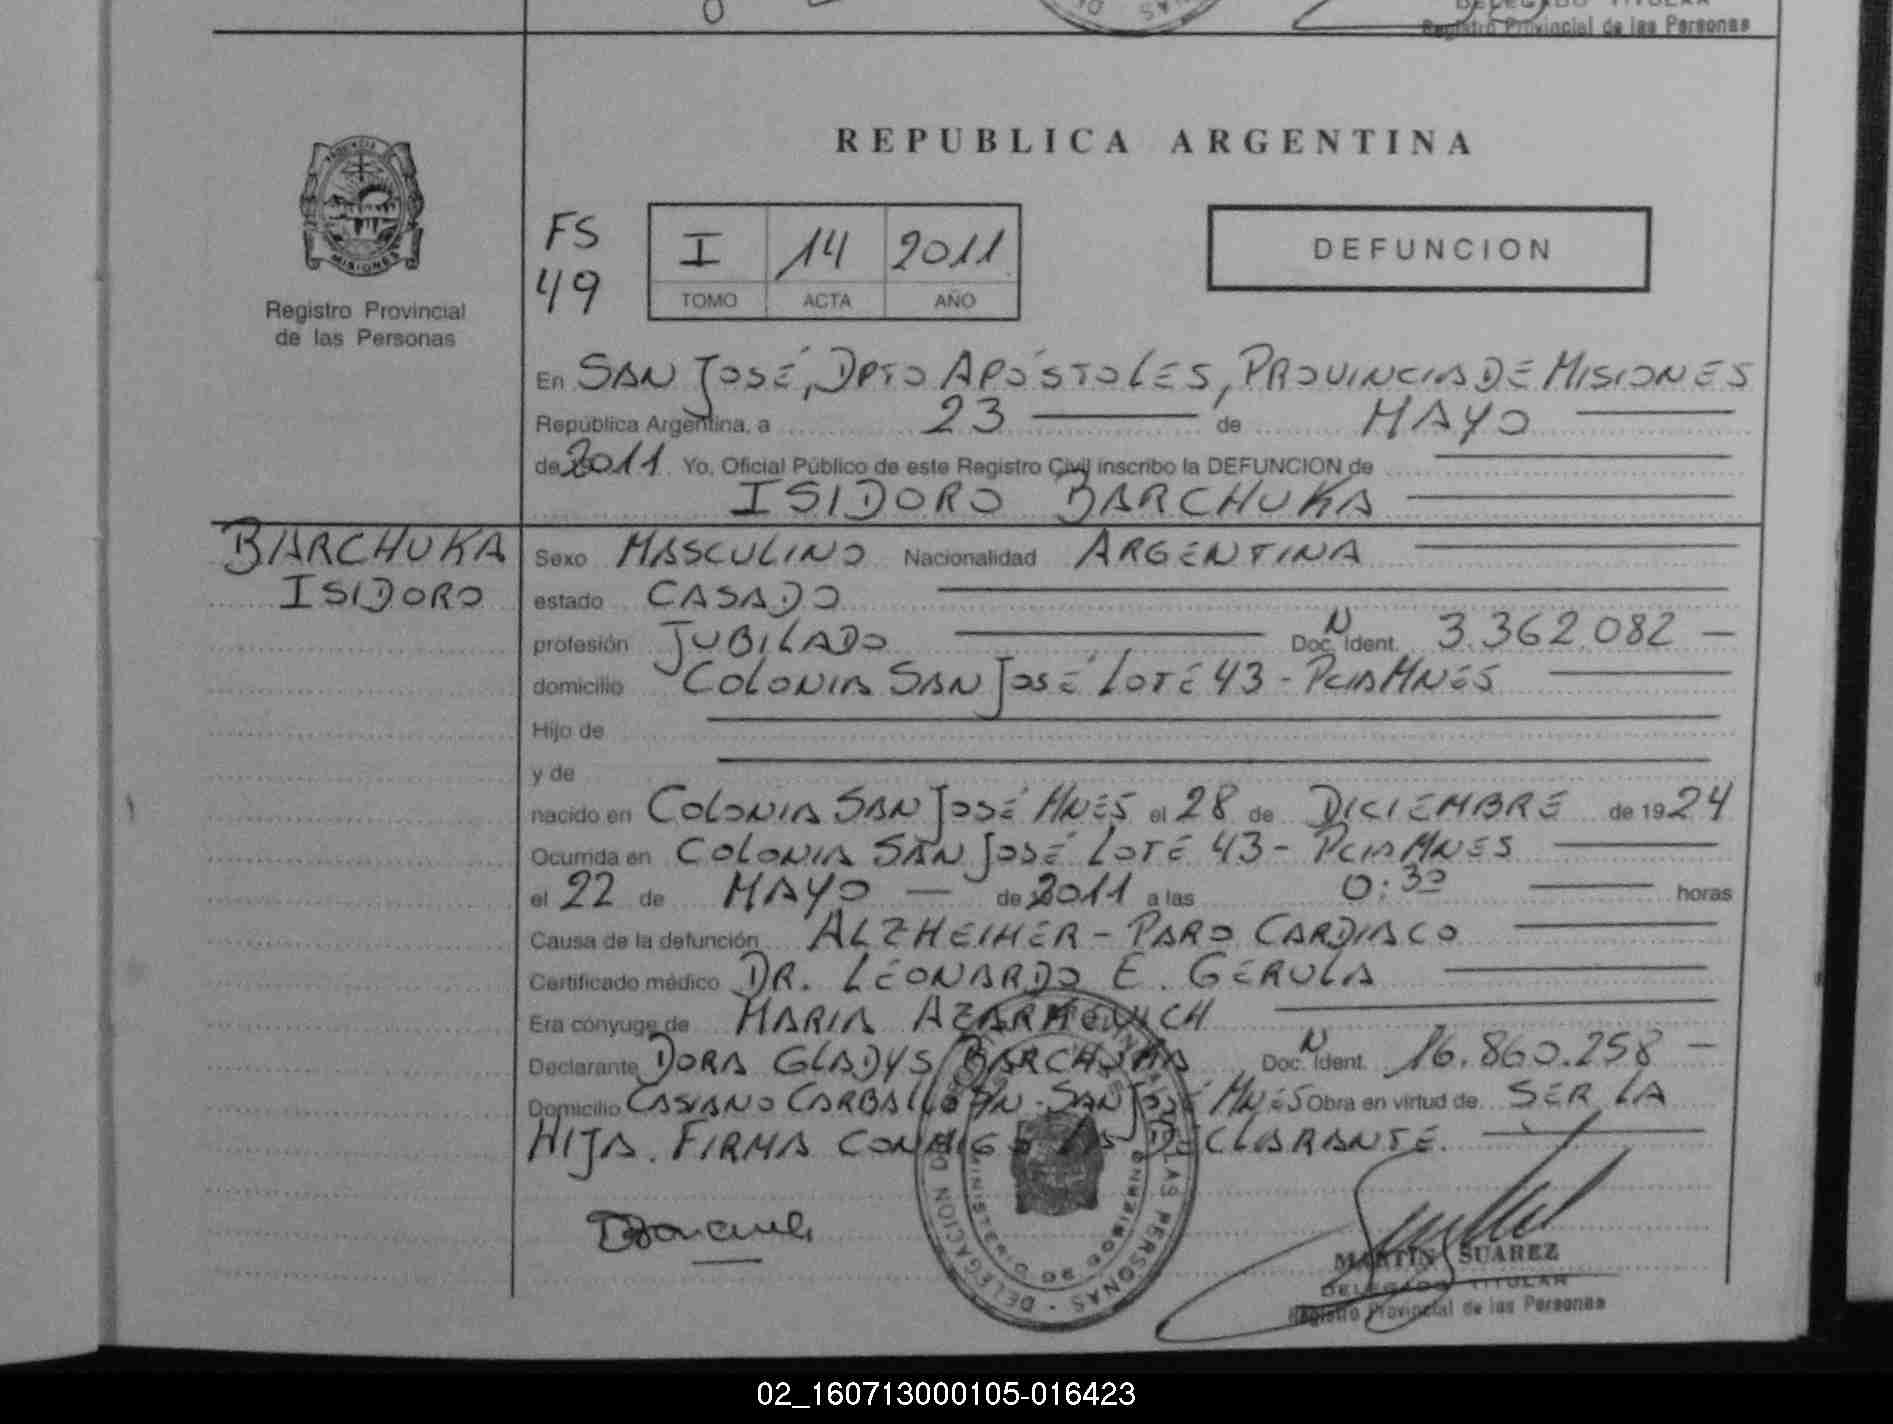 DELEGADO TITULAR
Registro Provincial de las Personas
PROVINCIA
MISIONES
Registro Provincial
de las Personas
REPUBLICA ARGENTINA
FS
49
I 14 2011
TOMO ACTA AÑO
DEFUNCION
En SAN JOSÉ, DPTO APÓSTOLES, PROVINCIA DE MISIONES
República Argentina, a 23 de MAYO
de 2011. Yo, Oficial Público de este Registro Civil inscribo la DEFUNCION de
ISIDORO BARCHUKA
BARCHUKA
ISIDORO
Sexo MASCULINO Nacionalidad ARGENTINA
estado CASADO
profesión JUBILADO Doc. N Ident. 3.362.082
domicilio COLONIA SAN JOSÉ LOTE 43 - PCIA MNES
Hijo de
y de
nacido en COLONIA SAN JOSÉ MNES el 28 de DICIEMBRE de 1924
Ocurrida en COLONIA SAN JOSÉ LOTE 43 - PCIA MNES
el 22 de MAYO de 2011 a las 0:30 horas
Causa de la defunción ALZHEIMER - PARO CARDIACO
Certificado médico DR. LEONARDO E. GERULA
Era cónyuge de MARIA
Declarante DORA GLADYS BARCHUKA Doc. N Ident. 16.860.258
Domicilio CASIANO CARBALLO SN - SAN JOSÉ MNES Obra en virtud de SER LA
HIJA. FIRMA CONMIGO LA DECLARANTE.
DELEGACION
LAS PERSONAS
MINISTERIO DE GOBIERNO
MARTIN SUAREZ
DELEGADO TITULAR
Registro Provincial de las Personas
02_160713000105-016423